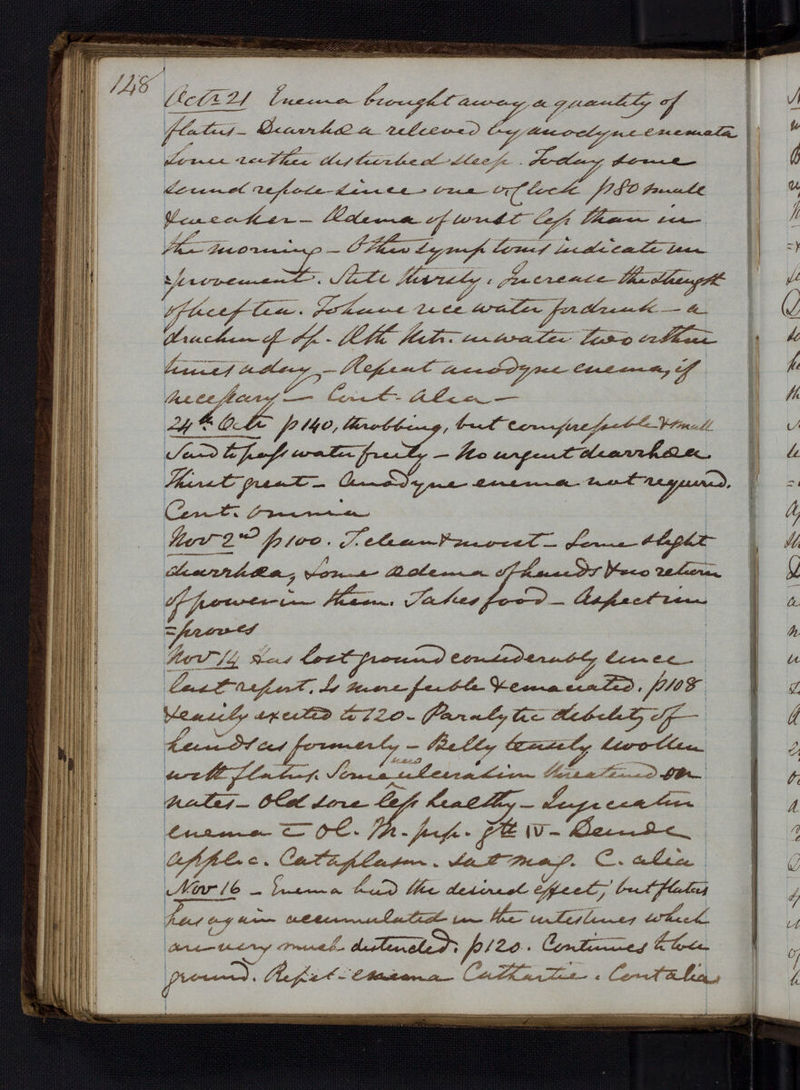 148
Octr 21 Enema brought away a quantity of
flatus - Diarrhœa relieved by anodyne enemata
Some rather disturbed sleep. Today some
sound repose since one o'Clock p80 small
& weaker - Œdema of wrist less than in
the morning - Other symptoms indicate im
=provement. Still thirsty. Increase the strength
of beef tea. To have rice water for drink - a
drachm of Sp. Æth Nitr. in water two or three
times a day - Repeat anodyne enema, if
necessary - Cont. alia -
24th Octr p140, throbbing, but compressible & small
Said to pass water freely - No urgent diarrhœa
Thirst great - Anodyne enema not required.
Cont. omnia
Nov 2nd p100. T. clean & moist - Some slight
diarrhœa, some œdema of hands & no return
of power in them. Takes food - Aspect im
=proves
Nov 14 Has lost ground considerably since
last report. Is more feeble & emaciated. p108
& easily excited to 120 - Paralytic debility of
hands as formerly - Belly tensely swollen
with flatus. Some new ulceration threatened on
nates - Old sore less healthy - Injiciatur
enema c Ol. M. pip. gtt IV - Deinde
applic. Cataplasm. C. alia
Nov 16 - Enema had the desired effect, but flatus
has again accumulated in the intestines which
are very much distended. p120. Continues to lose
ground. Repet - enema Cathartic. Cont alia